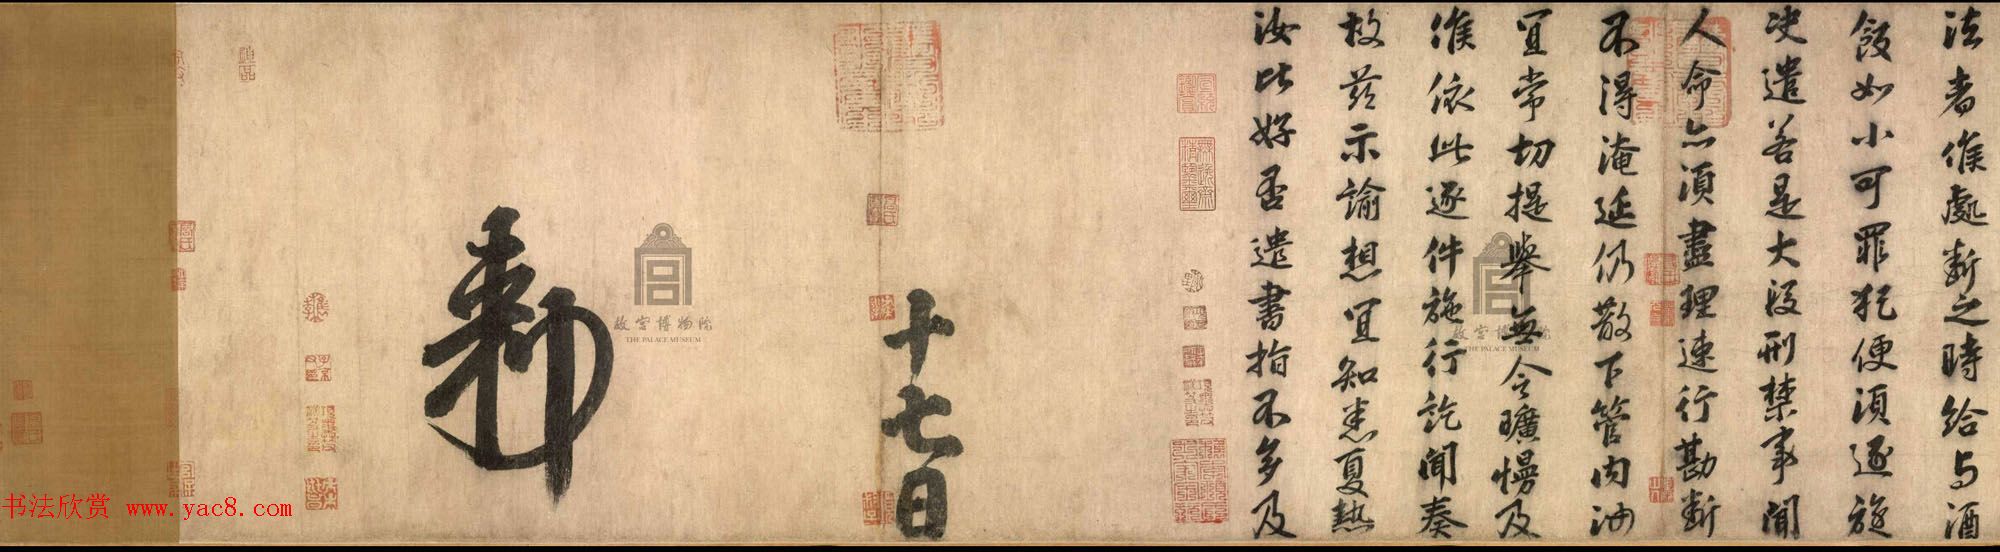 法者俟處斷之時給与酒
飯如小可罪犯便須逐旋
决遣若是大段刑禁事関
人命亦須盡理速行勘断
不得淹延仍散下管内州
宜常切提舉無令曠慢及
候依此逐件施行訖聞奏
故茲示諭想宜知悉夏熱
汝比好否遣書指不多及
十七日
勅
故宫博物院
THE PALACE MUSEUM
故宫博物院
THE PALACE MUSEUM
书法欣赏 www.yac8.com